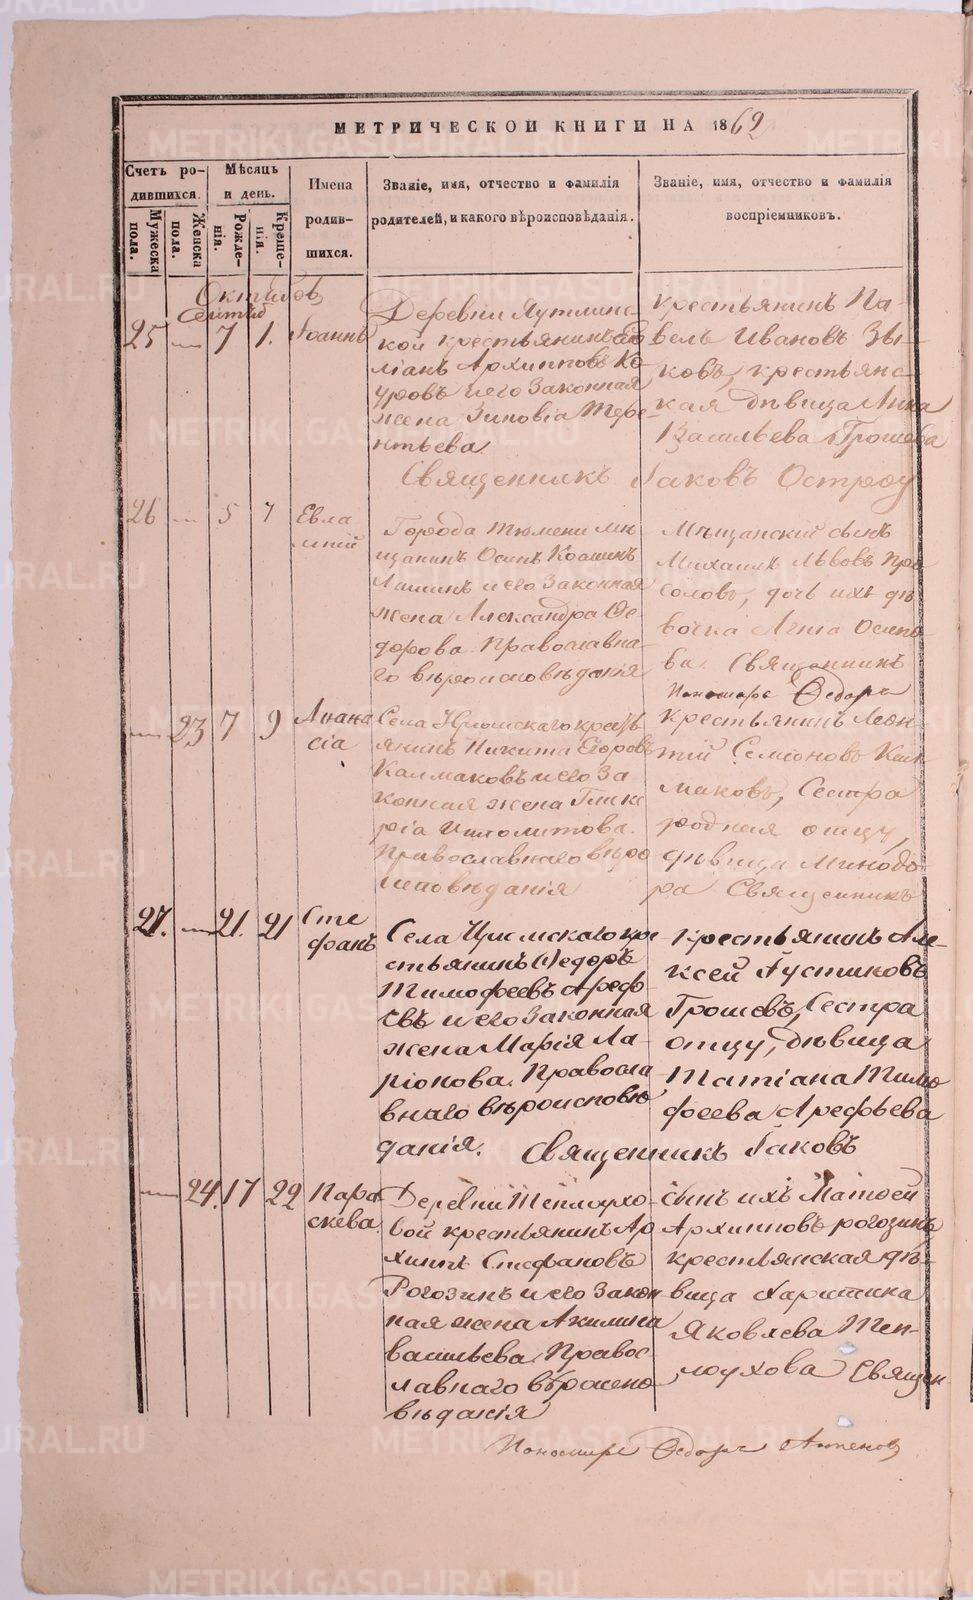 МЕТРИЧЕСКОЙ КНИГИ НА 1862
Счетъ родившихся.
Мужеска пола.
Женска пола.
Мѣсяцъ и день.
Рожденія.
Крещенія.
Имена родившихся.
Званіе, имя, отчество и фамилія
родителей, и какого вѣроисповѣданія.
Званіе, имя, отчество и фамилія
воспріемниковъ.
Октябрь
25 — 7 1. Іоаннъ
кой крестьянинъ
Архиповъ
и его законная
жена Зиновіа Тере-
нтьева
крестьянинъ Па-
велъ Ивановъ Зы-
ковъ, крестьянс-
кая дѣвица Анна
Васильева Грошева
Священникъ Іаковъ
26 — 5 7 Евла
мпій
Города Тюмени мѣ
щанинъ Осипъ
и его законная
жена Александра Ѳе
дорова Православна
го вѣроисповѣданія
Мѣщанскій сынъ
Михаилъ Львовъ
дочь ихъ дѣ
вочка Осипо
ва. Священникъ
Пономарь Ѳедоръ
— 23 7 9 Анана
сіа
Села крестьянинъ Никита Егоровъ
Калмаковъ и его за
конная жена Глике
рія Ипполитова.
Православнаго вѣро
исповѣданія
крестьянинъ Леон
тій Семіоновъ Кал
маковъ, Сестра
родная отцу,
дѣвица Минодо
ра Священникъ
27. — 21. 21 Сте
фанъ
Села кре
стьянинъ Ѳедоръ
Тимофеевъ Арефь
евъ и его законная
жена Марія Ла-
ріонова. Православ
внаго вѣроисповѣ
данія.
крестьянинъ Але-
ксей Густиновъ
Грошевъ, Сестра
отцу, дѣвица
Татіана Тимо
феева Арефьева
Священникъ Іаковъ
— 24. 17 22 Пара
скева
Деревни Теплоухо-
вой крестьянинъ Ар
хипъ Стефановъ
Рогозинъ и его закон
ная жена Акилина
Васильева, Правос-
лавнаго вѣроиспо-
вѣданія
сынъ ихъ Матѳей
Архиповъ рогозинъ
крестьянская дѣ-
вица Харитина
Яковлева Теп-
лоухова Священ-
Пономарь Ѳедоръ
METRIKI.GASO-URAL.RU